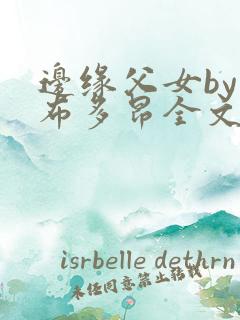 邊缘父女by
布多昂全文
isrbelle dethrn
未经同意禁止转载